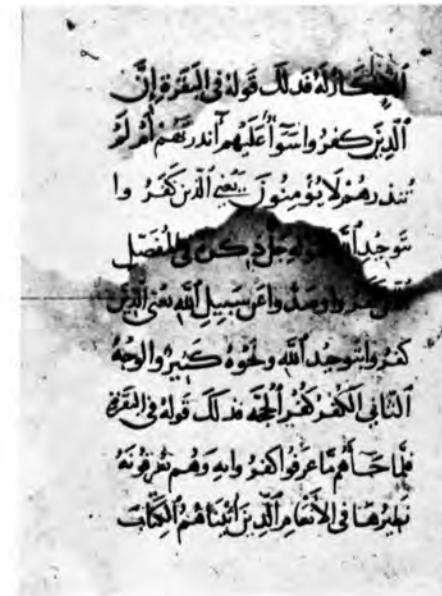 كار له فذلك قوله في البقرة إن
الذين كفروا سوآ عليهم أنذرتهم أم لم
تنذرهم لا يؤمنون يعني الذين كفروا
بتوحيد الله قوله جل ذكره في المفصل
كفروا وصدوا عن سبيل الله يعنى الذين
كفروا بتوحيد الله ونحوه كثير والوجه
الثاني الكفر كفر الحجة فذلك قوله في البقرة
فلما جآءهم ما عرفوا كفروا به وهم يعرفونه
نظيرها في الأنعام الذين اتيناهم الكتاب